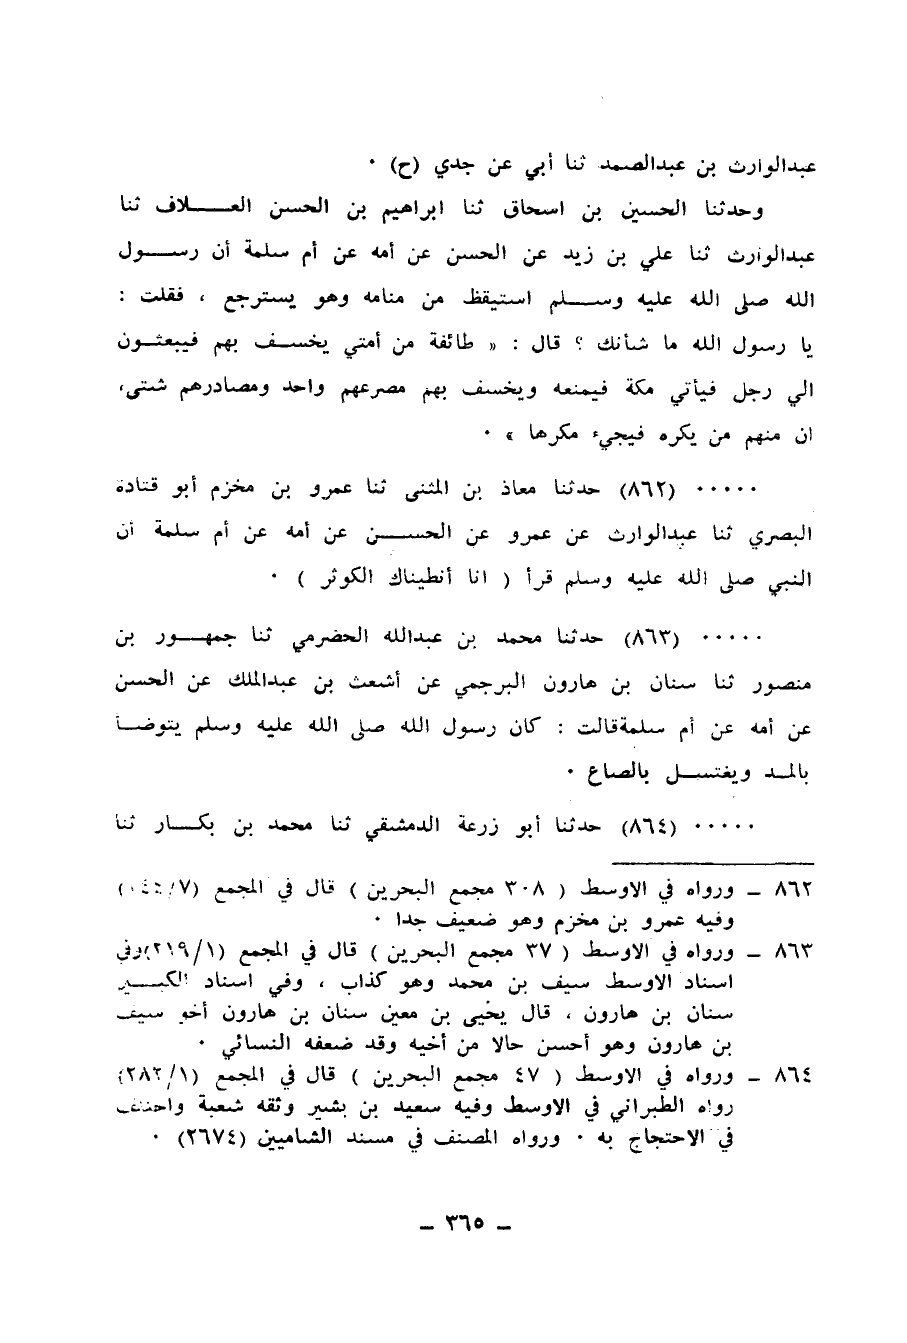 عبدالوارث بن عبدالصمد ثنا أبي عن جدي (ح) ٠
وحدثنا الحسين بن اسحاق ثنا ابراهيم بن الحسن العـــلاف ثنا
عبدالوارث ثنا علي بن زيد عن الحسن عن أمه عن أم سلمة أن رســـول
الله صلى الله عليه وســـلم استيقظ من منامه وهو يسترجع ، فقلت :
يا رسول الله ما شأنك ؟ قال : « طائفة من أمتي يخســف بهم فيبعثــون
الي رجل فيأتي مكة فيمنعه ويخسف بهم مصرعهم واحد ومصادرهم شتى،
ان منهم من يكره فيجيء مكرها » ٠
٠٠٠٠٠ (٨٦٢) حدثنا معاذ بن المثنى ثنا عمرو بن مخزم أبو قتادة
البصري ثنا عبدالوارث عن عمرو عن الحســـن عن أمه عن أم سلمة أن
النبي صلى الله عليه وسلم قرأ ( انا أنطيناك الكوثر ) ٠
٠٠٠٠٠ (٨٦٣) حدثنا محمد بن عبدالله الحضرمي ثنا جمهـــور بن
منصور ثنا سنان بن هارون البرجمي عن أشعث بن عبدالملك عن الحسن
عن أمه عن أم سلمةقالت : كان رسول الله صلى الله عليه وسلم يتوضــأ
بالمــد ويغتســل بالصاع ٠
٠٠٠٠٠ (٨٦٤) حدثنا أبو زرعة الدمشقي ثنا محمد بن بكـــار ثنا
٨٦٢ ـ ورواه في الاوسط ( ٣٠٨ مجمع البحرين ) قال في المجمع
وفيه عمرو بن مخزم وهو ضعيف جدا ٠
٨٦٣ ـ ورواه في الاوسط ( ٣٧ مجمع البحرين ) قال في المجمع (٢١٩/١)وفي
اسناد الاوسط سيف بن محمد وهو كذاب ، وفي اسناد الكبـــير
سنان بن هارون ، قال يحيى بن معين سنان بن هارون أخو سيف
بن هارون وهو أحسن حالا من أخيه وقد ضعفه النسائي ٠
٨٦٤ ـ ورواه في الاوسط ( ٤٧ مجمع البحرين ) قال في المجمع (٢٨٢/١)
رواه الطبراني في الاوسط وفيه سعيد بن بشير وثقه شعبة واختلف
في الاحتجاج به ٠ ورواه المصنف في مسند الشاميين (٢٦٧٤) ٠
ـ ٣٦٥ ـ